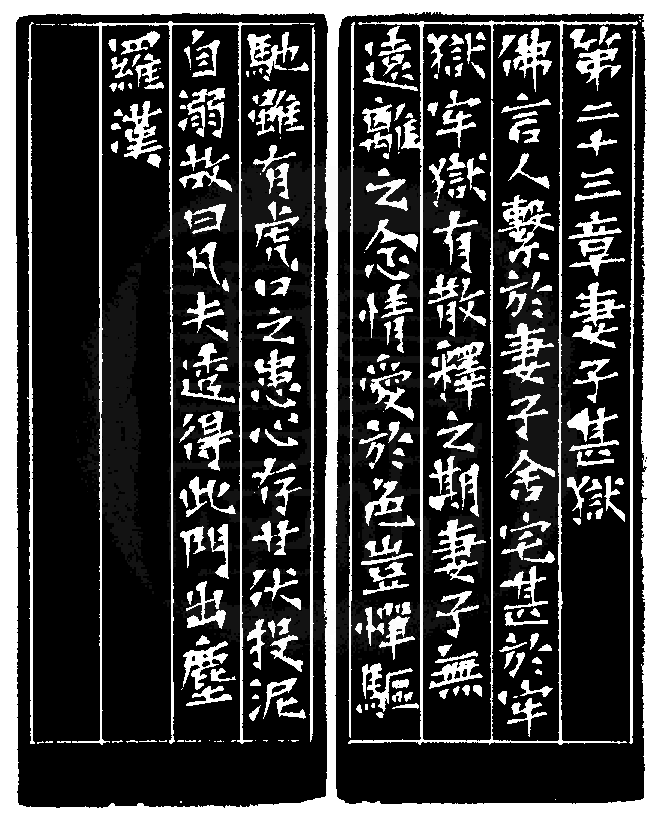 第二十三章妻子甚獄
佛言人繫於妻子舍宅甚於牢
獄牢獄有散釋之期妻子無
遠離之念情愛於色豈憚驅
馳雖有虎口之患心存甘伏投泥
自溺故曰凡夫透得此門出塵
羅漢